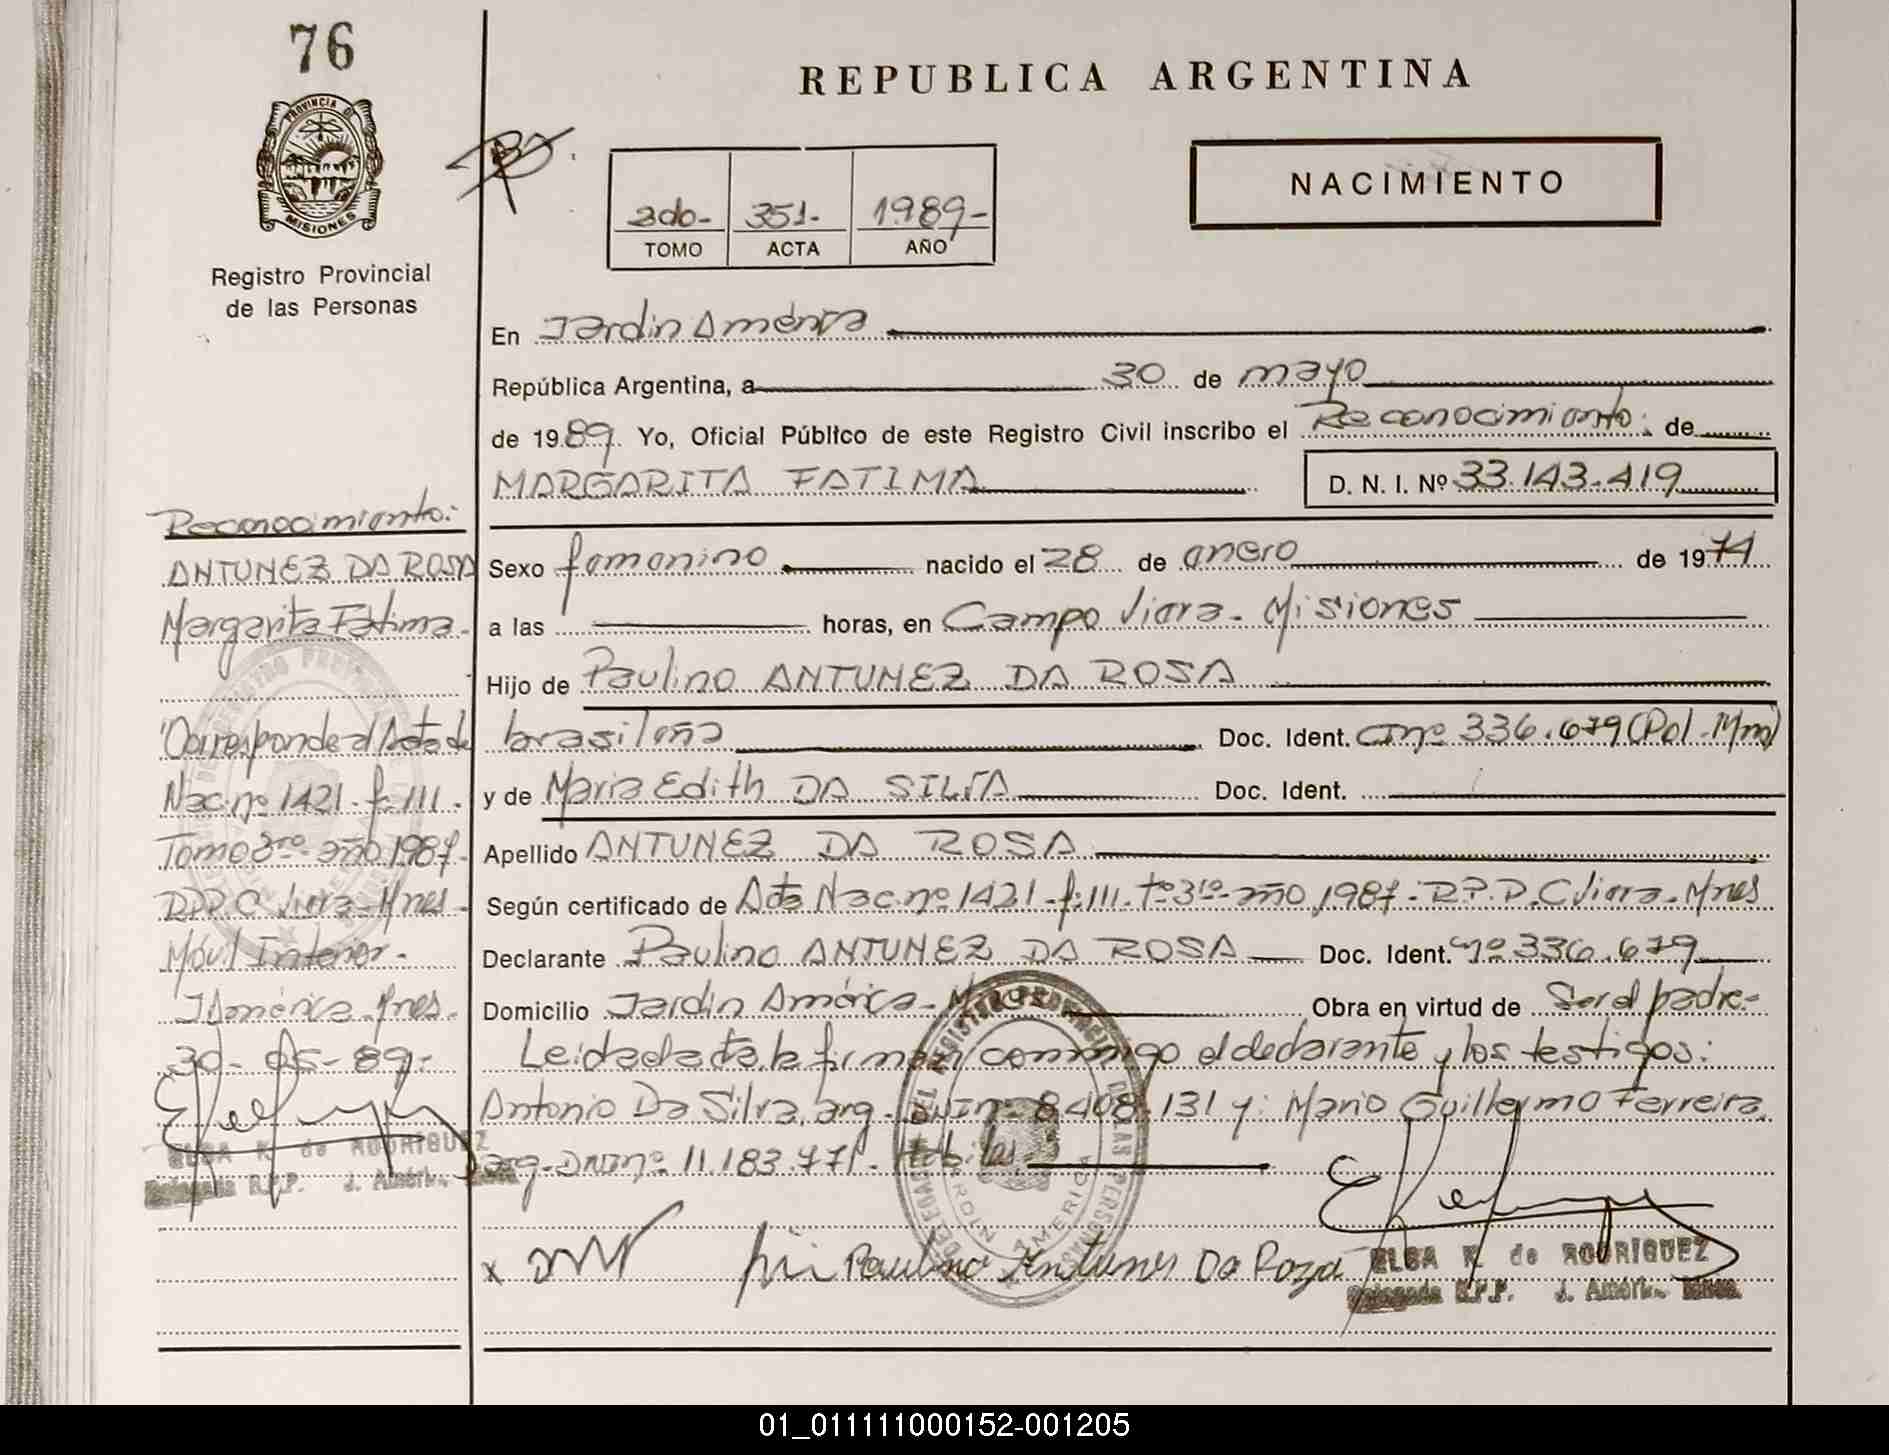 76
REPUBLICA ARGENTINA
PROVINCIA DE
MISIONES
Registro Provincial
de las Personas
NACIMIENTO
2do- 351- 1989-
TOMO ACTA AÑO
En Jardin América
República Argentina, a 30 de mayo
de 1989. Yo, Oficial Público de este Registro Civil inscribo el Reconocimiento: de
MARGARITA FATIMA D. N. I. Nº 33.143.419
Sexo femenino nacido el 28 de enero de 1974
a las horas, en Campo Viera. Misiones
Hijo de Paulino ANTUNEZ DA ROSA
brasileña Doc. Ident. CI nº 336.679 (Pol. Mnes)
y de Maria Edith DA SILVA Doc. Ident.
Apellido ANTUNEZ DA ROSA
Según certificado de Acta Nac. nº 1421. f: 111. tº 3ro- año 1987. R.P.P. C Viera. Mnes
Declarante Paulino ANTUNEZ DA ROSA Doc. Ident. CI nº 336.679
Domicilio Jardin América. Mnes Obra en virtud de Ser el padre.-
Leida el acta, la firman conmigo el declarante y los testigos:
Antonio Da Silva, arg. DNI nº 8.408.131 y: Mario Guillermo Ferreira,
arg. DNI nº 11.183.771. Habiles
x Paulino Antunes Da Roza
ELBA K. de RODRIGUEZ
Delegada R.P.P. J. América
Reconocimiento:
ANTUNEZ DA ROSA
Margarita Fatima.
Corresponde al Acta de
Nac. nº 1421. f: 111.
Tomo 3ro- año 1987.
R.P.P. C Viera- Mnes.
Móvil Interior.
J América. Mnes.
30- 05- 89.
ELBA K. de RODRIGUEZ
Delegada R.P.P. J. América
01_011111000152-001205